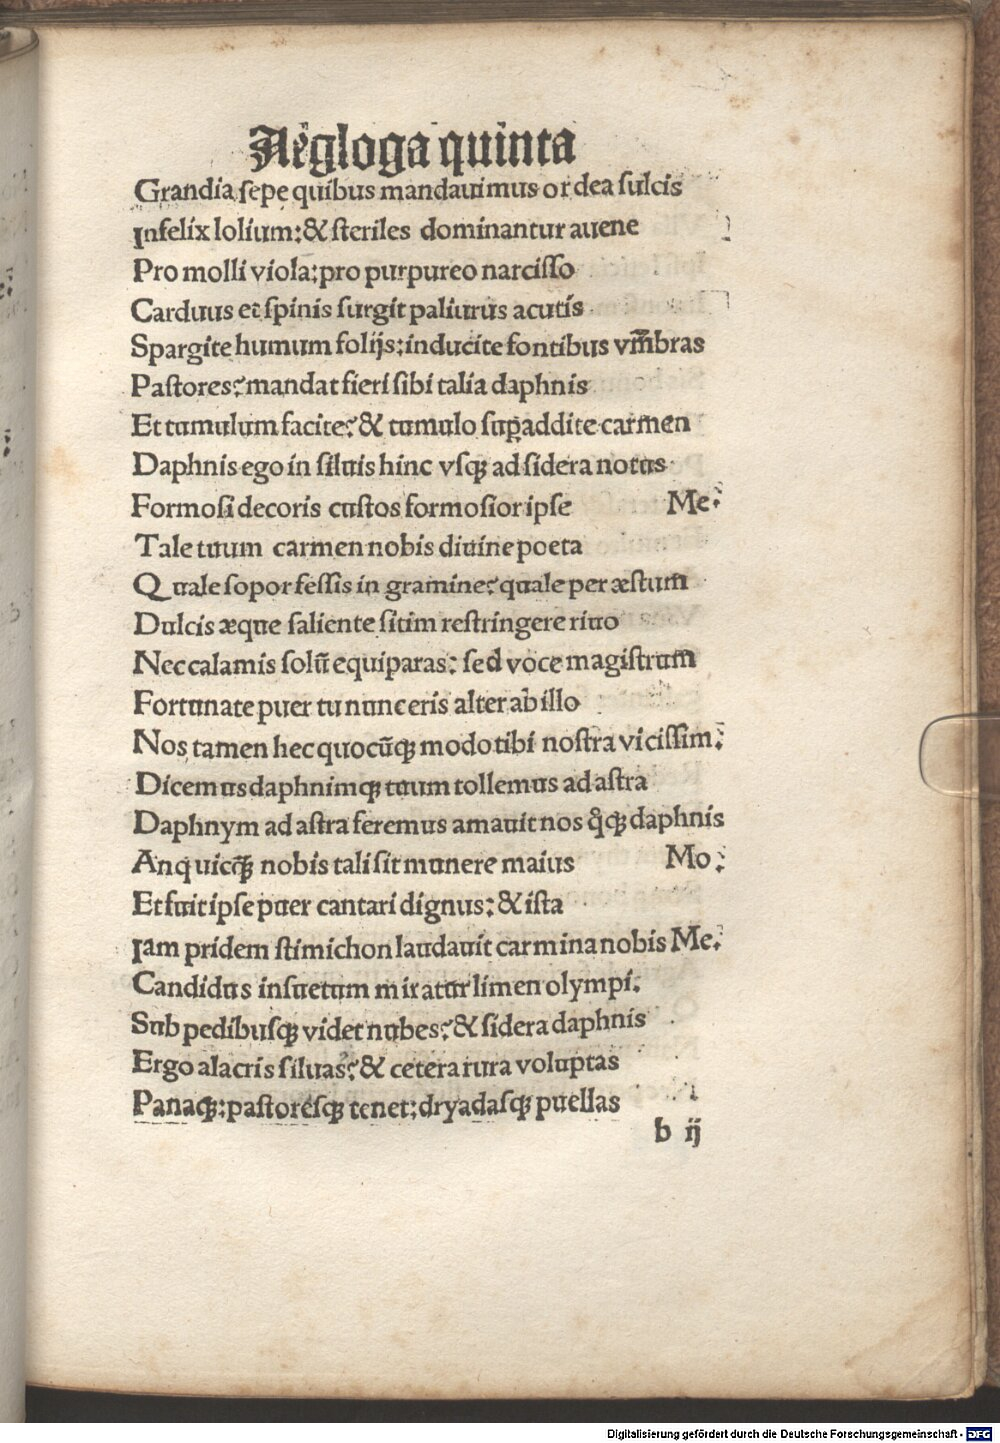 Aegloga quinta
Grandia ſepe quibus mandauimus ordea ſulcis
Infelix lolium: & ſteriles dominantur auene
Pro molli viola: pro purpureo narciſſo
Carduus et ſpinis ſurgit paliurus acutis
Spargite humum folijs: inducite fontibus vmbras
Paſtores: mandat fieri ſibi talia daphnis
Et tumulum facite: & tumulo suꝑaddite carmen
Daphnis ego in ſiluis hinc vſqꝫ ad ſidera notus
Formoſi decoris cuſtos formoſior ipſe Me:
Tale tuum carmen nobis diuine poeta
Quale ſopor feſſis in gramine: quale per æſtum
Dulcis æque ſaliente ſitim reſtringere riuo
Nec calamis ſolū equiparas: ſed voce magiſtrum
Fortunate puer tu nunc eris alter ab illo
Nos tamen hec quocūqꝫ modo tibi noſtra viciſſim:
Dicemus daphnimqꝫ tuum tollemus ad aſtra
Daphnym ad aſtra feremus amauit nos qͦqꝫ daphnis
An quicqꝫ̄ nobis tali ſit munere maius Mo:
Et fuit ipſe puer cantari dignus: & iſta
Iam pridem ſtimichon laudauit carmina nobis Me:
Candidus inſuetum miratur limen olympi:
Sub pedibuſqꝫ videt nubes: & ſidera daphnis
Ergo alacris ſiluas: & cetera rura voluptas
Panaqꝫ: paſtoreſqꝫ tenet: dryadaſqꝫ puellas
b ij
Digitalisierung gefördert durch die Deutsche Forschungsgemeinschaft - DFG